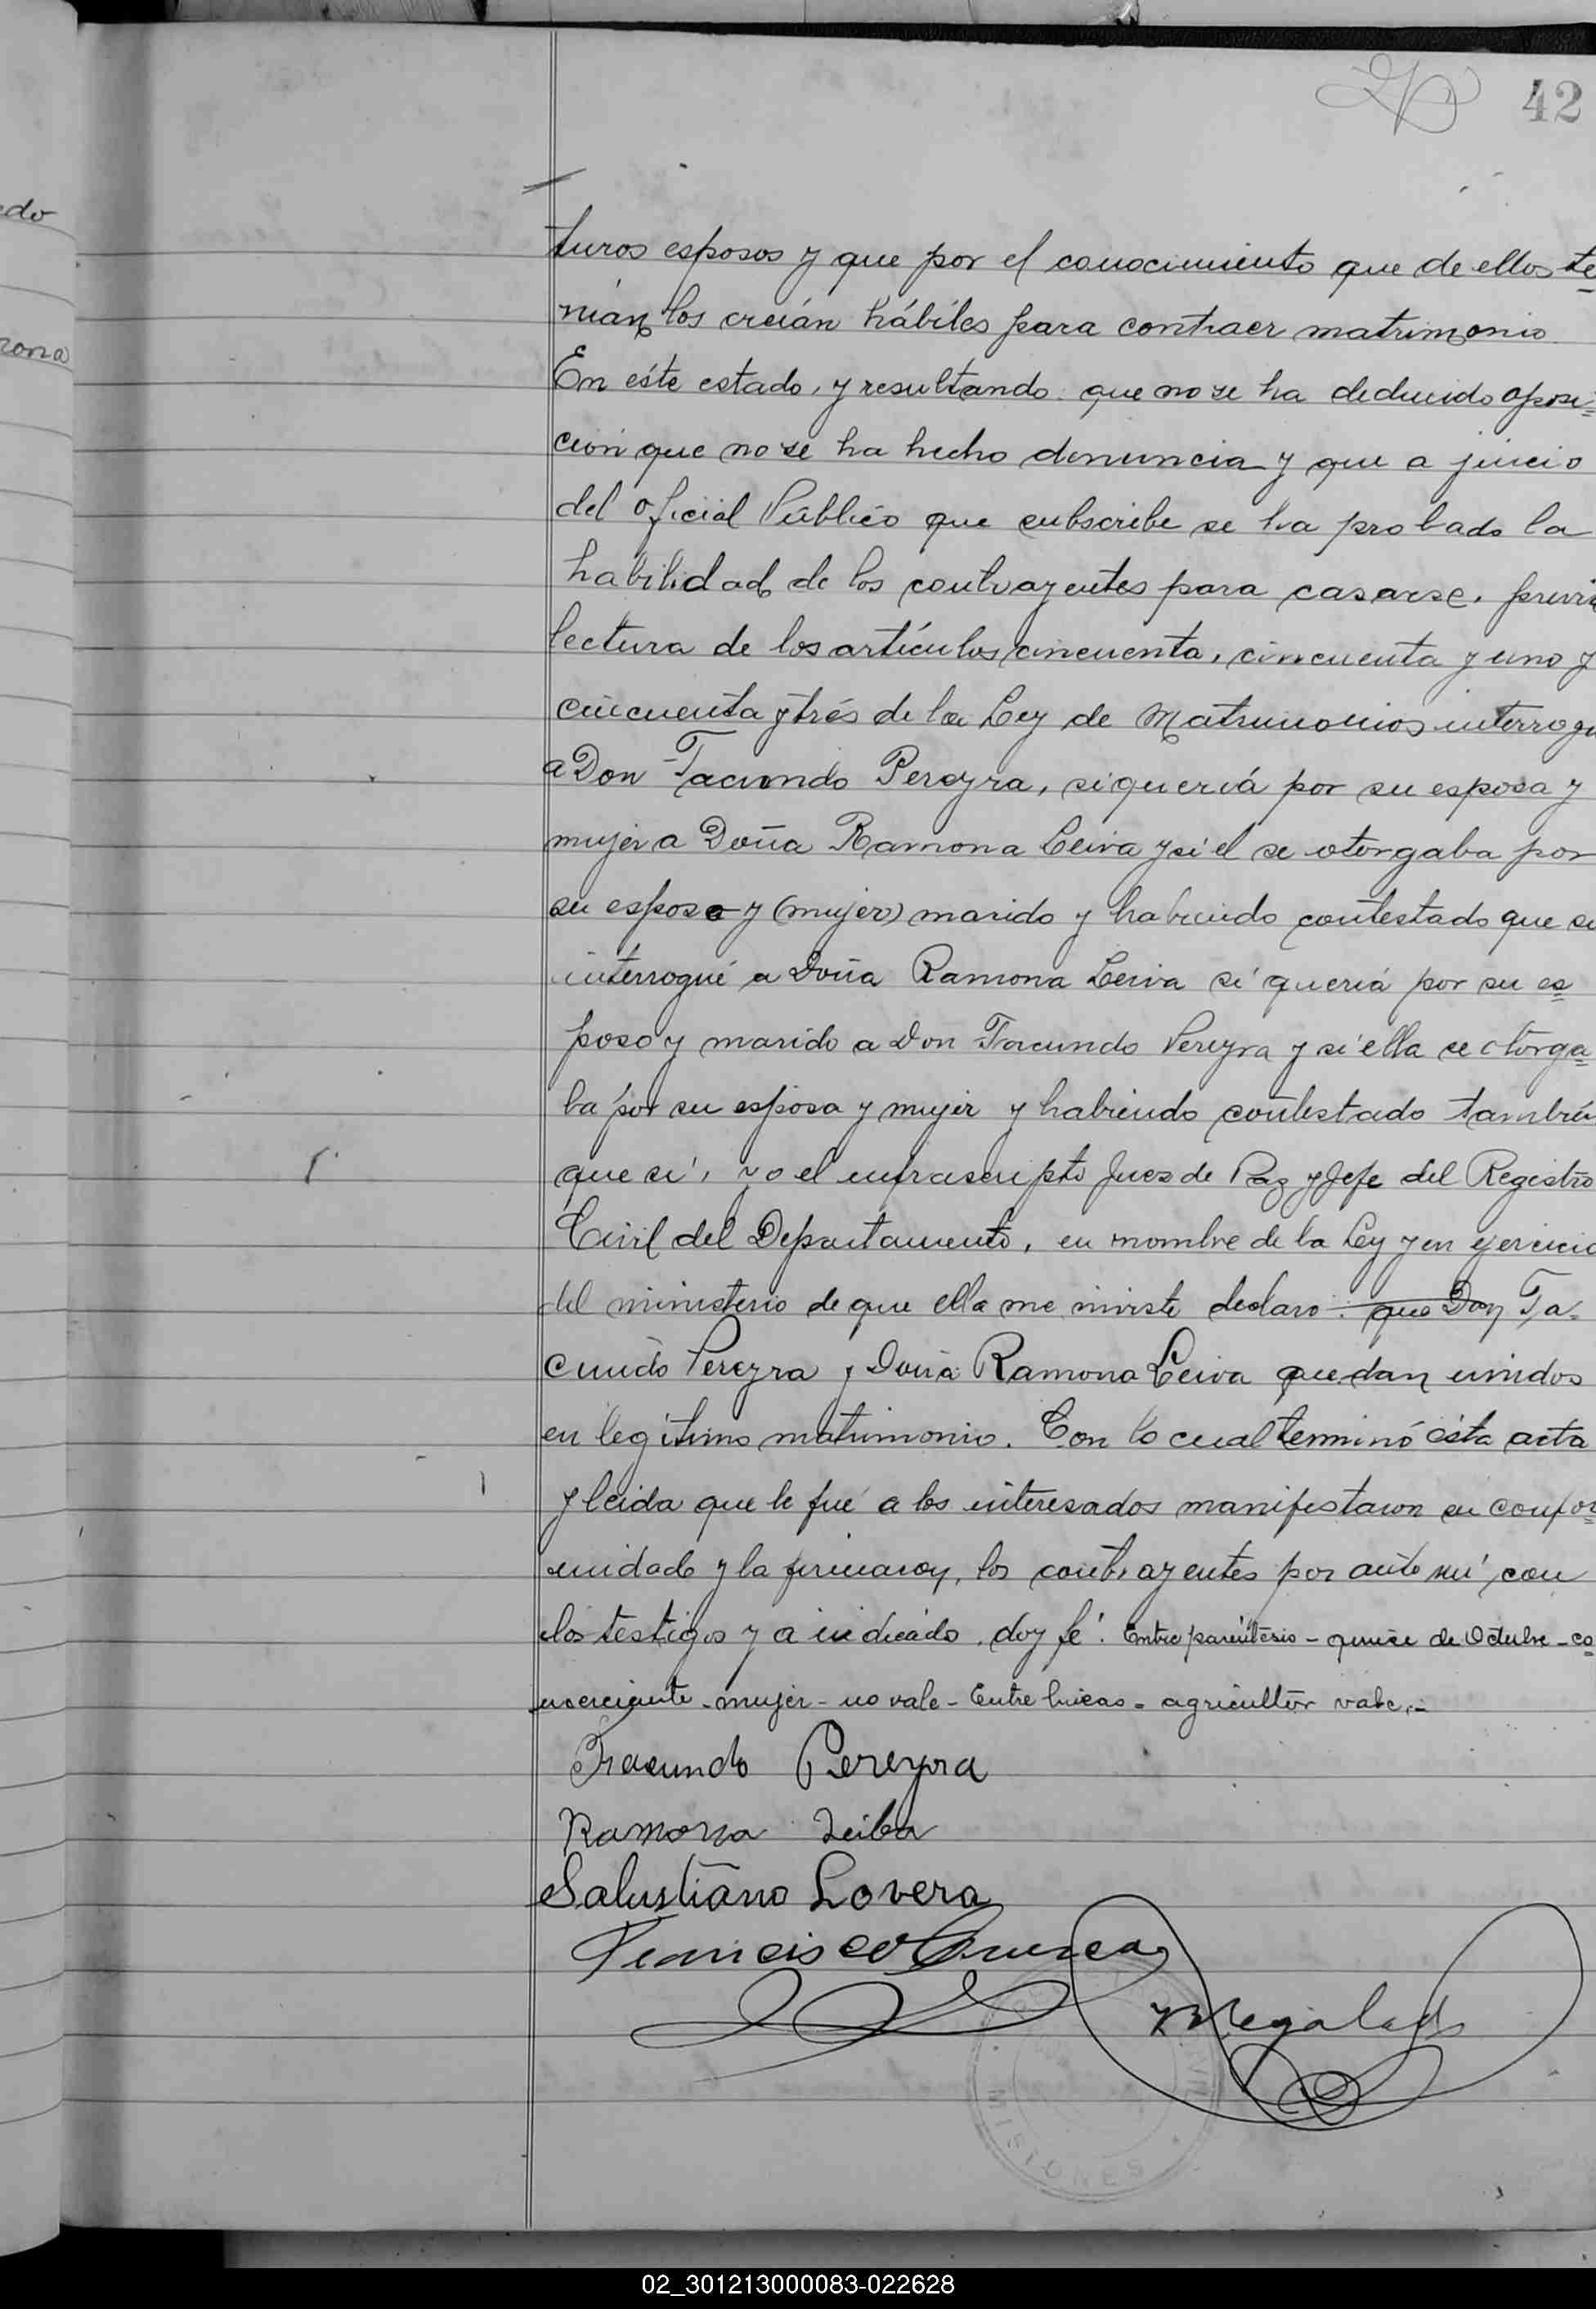 42
edo
rona
turos esposos y que por el conocimiento que de ellos te
nián los creián hábiles para contraer matrimonio
En éste estado, y resultando: que no se ha deducido oposi=
ción que no se ha hecho denuncia y que a juicio
del oficial Público que subscribe se ha probado la
habilidad de los contrayentes para casarse, previa
lectura de los artículos cincuenta, cincuenta y uno y
cincuenta y trés de la Ley de Matrimonios interrogu
a Don Facundo Pereyra, si queriá por su esposa y
mujer a Doña Ramona Leiva y si él se otorgaba por
su esposo y (mujer) marido y habiendo contestado que si
interrogué a Doña Ramona Leiva si queriá por su es
poso y marido a Don Facundo Pereyra y si ella se otorga
ba por su esposa y mujer y habiendo contestado tambien
que si, yo el infrascripto Juez de Paz y Jefe del Registro
Civil del Departamento, en nombre de la Ley y en ejercicio
del ministerio de que ella me inviste declaro: que Don Fa=
cundo Pereyra y Doña Ramona Leiva quedan unidos
en legítimo matrimonio. Con lo cual terminó ésta acta
y leida que le fué a los interesados manifestaron su confor
midad y la firmaron, los contrayentes por ante mí con
los testigos ya indicado, doy fé. Entre paréntesis - quince de Octubre - co
merciante - mujer - no vale - Entre lineas = agricultor vale.-
Facundo Pereyra
Ramona Leiba
Salustiano Lovera
Francisco
Regalado
MISIONES
02_301213000083-022628